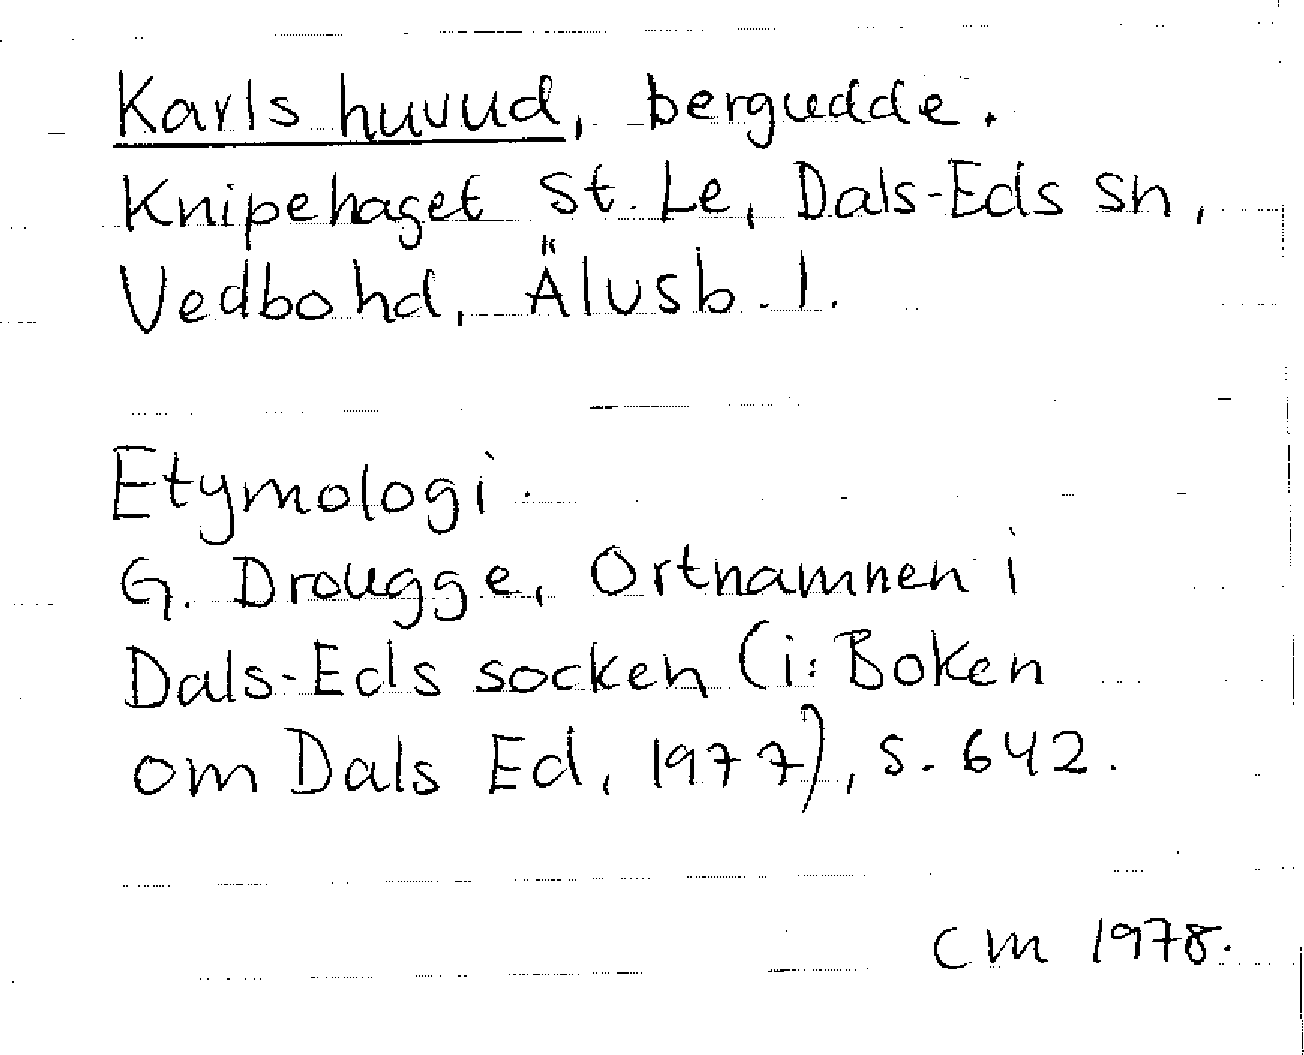 Karls huvud, bergudde.
Knipehaget St. Le, Dals-Eds sn,
Vedbo hd, Älvsb. l.
Etymologi.
G. Drougge, Ortnamnen i
Dals-Eds socken (i: Boken
om Dals Ed, 1977), s. 642.
CM 1978.